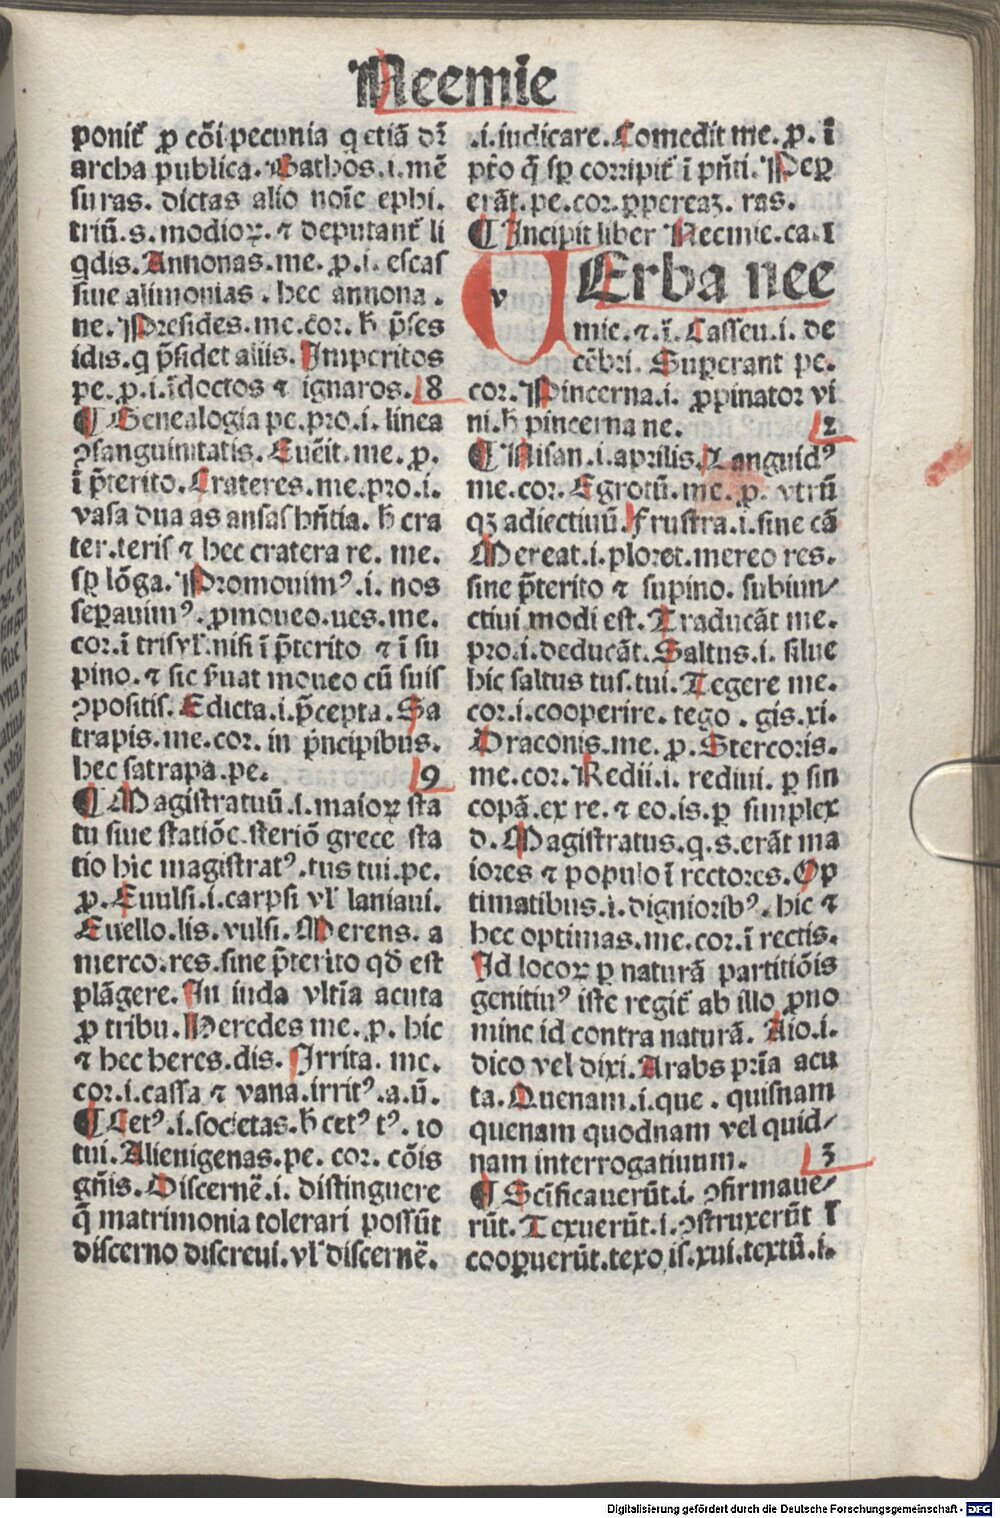 Neemie
ponit᷑ ꝓ cōi pecunia q etiā dr̄
archa publica. Bathos .i. mē
suras. dictas alio noīe ephi.
triū. s. modioꝝ. ⁊ deputant᷑ li
qdis. Annonas. me. ꝓ. i. escas
siue alimonias. hec annona.
ne. Presides. me. cor. h̄ p̄ses
idis. q p̄sidet aliis. Imperitos
pe. ꝓ. i. īdoctos ⁊ ignaros. 8
¶ Genealogia pe. pro. i. linea
ꝯsanguinitatis. Euēit. me. ꝓ.
ī p̄terito. Crateres. me. pro. i.
vasa dua as ansas hn̄tia. h̄ cra
ter. teris ⁊ hec cratera re. me.
sꝑ lōga. Promouimꝰ. i. nos
seꝑauimꝰ. ꝓmoueo. ues. me.
cor. ī trisyl᷑. nisi ī p̄terito ⁊ ī su
pino. ⁊ sic ẜuat moueo cū suis
ꝯpositis. Edicta. i. p̄cepta. Sa
trapis. me. cor. in p̄ncipibus.
hec satrapa. pe. 9
¶ Magistratuū. i. maioꝝ sta
tu siue statiōe. steriō grece sta
tio hic magistratꝰ. tus tui. pe.
ꝓ. Euulsi. i. carpsi vl᷑ laniaui.
Euello. lis. vulsi. Merens. a
merco. res. sine p̄terito qd̄ est
plāgere. In iuda vltīa acuta
ꝓ tribu. Heredes me. ꝓ. hic
⁊ hec heres. dis. Irrita. me.
cor. i. cassa ⁊ vana. irritꝰ. a. ū.
¶ Cetꝰ. i. societas. h̄ cetꝰ tꝰ. 10
tui. Alienigenas. pe. cor. cōis
gn̄is. Discernē. i. distinguere
q̄ matrimonia tolerari possūt
discerno discreui. vl᷑ discernē.
.i. iudicare. Comedit me. ꝓ. ī
pt̄o q̄ sꝑ corripit᷑ ī pn̄ti. Peꝑ
erāt. pe. cor. ꝑpereaꝫ. ras.
¶ Incipit liber Neemie. ca. I
v Erba nee
mie. ⁊. ī. Casleu. i. de
cēbri. Superant pe.
cor. Pincerna. i. ꝓpinator vi
ni. h̄ pincerna ne. 2
¶ Nisan. i. aprilis. Languidꝰ
me. cor. Egrotū. me. ꝓ. vtrū
qꝫ adiectiuū. Frustra. i. sine cā
Mereat. i. ploret. mereo res.
sine p̄terito ⁊ supino. subiun/
ctiui modi est. Traducāt me.
pro. i. deducāt. Saltus. i. silue
hic saltus tus. tui. Tegere me.
cor. i. cooperire. tego. gis. xi.
Draconis. me. ꝓ. Stercoris.
me. cor. Redii. i. rediui. ꝑ sin
copā. ex re. ⁊ eo. is. ꝑ simplex
d. Magistratus. q. s. erāt ma
iores ⁊ populo ī rectores. Op
timatibus. i. dignioribꝰ. hic ⁊
hec optimas. me. cor. ī rectis.
Id locoꝝ ꝑ naturā partitiōis
genitiuꝰ iste regit᷑ ab illo ꝓno
mine id contra naturā. Aio. i.
dico vel dixi. Arabs prīa acu
ta. Quenam. i. que. quisnam
quenam quodnam vel quid/
nam interrogatiuum. 3
¶ Scīficauerūt. i. ꝯfirmaue/
rūt. Texuerūt. i. ꝯstruxerūt ⁊
cooꝑuerūt. texo is. xui. textū. i.
Digitalisierung gefördert durch die Deutsche Forschungsgemeinschaft - DFG